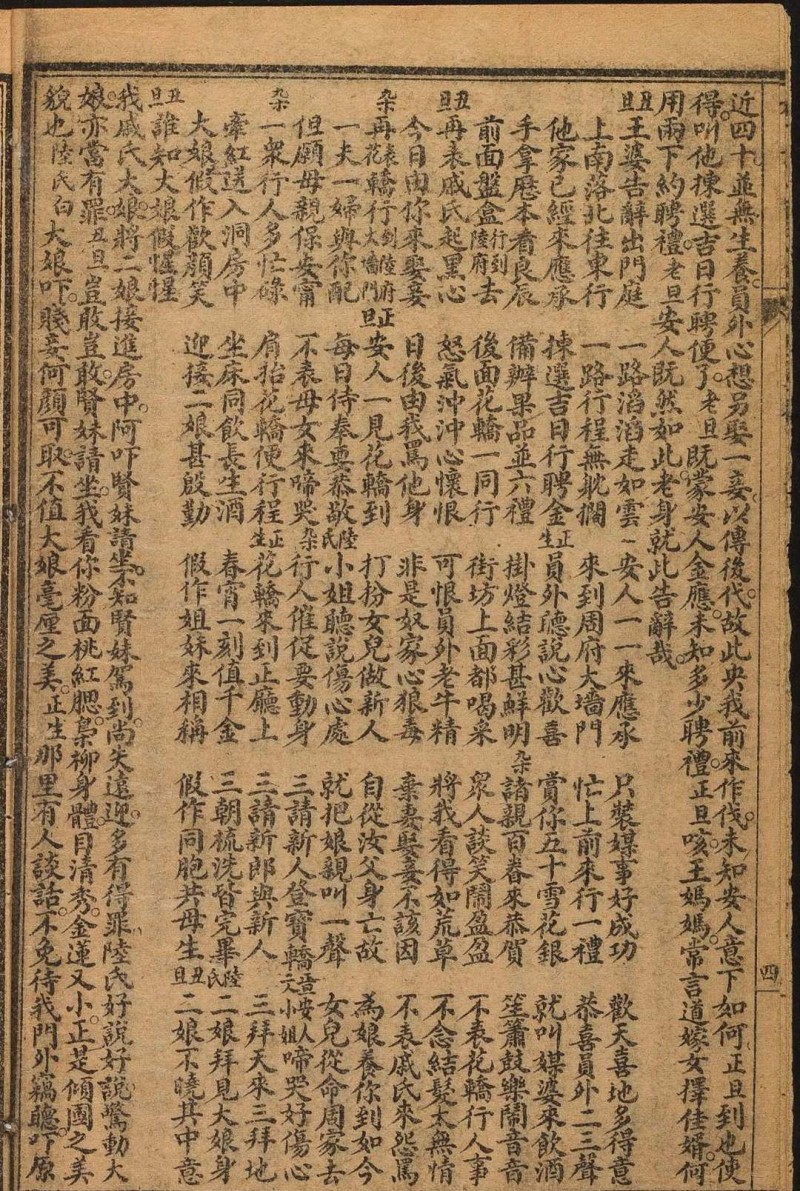 近四十並無生養。員外心想另娶一妾以傳後代。故此央我前來作伐。未知安人意下如何正旦到也使
得。叫他揀選吉日行聘便了。老旦既蒙安人金應。未知多少聘禮。正旦咳。王媽媽。常言道嫁女擇佳婿。何
用兩下約聘禮老旦安人既然如此。老身就此告辭哉。
丑旦王婆告辭出門庭 一路滔滔走如雲 安人一一來應承 只裝媒事好成功 歡天喜地多得意
上南落北往東行 一路行程無躭擱 來到周府大墻門 忙上前來行一禮 恭喜員外二三聲
他家已經來應承 揀選吉日行聘金 正生員外聽說心歡喜 賞你五十雪花銀 就叫媒婆來飲酒
手拿曆本看良辰 備辦果品並六禮 掛燈結彩甚鮮明 雜諸親百眷來恭賀 笙簫鼓樂鬧音音
前面盤盒行到陸府去 後面花轎一同行 街坊上面都喝采 眾人談笑鬧盈盈 不表花轎行人事
丑旦再表戚氏起黑心 怒氣沖沖心懷恨 可恨員外老牛精 將我看得如荒草 不念結髮太無情
今日由你來娶妾 日後由我罵他身 非是奴家心狠毒 棄妻娶妾不該因 不表戚氏來怨罵
雜再表花轎行到陸府大墻門 正旦安人一見花轎到 打扮女兒做新人 自從汝父身亡故 為娘養你到如今
一夫一婦與你配 每日侍奉要恭敬 陸氏小姐聽說傷心處 就把娘親叫一聲 女兒從命周家去
但願母親保安甯 不表母女來啼哭 雜行人催促要動身 三請新人登寶轎 安人小姐啼哭好傷心
雜一衆行人多忙碌 肩抬花轎便行程 正生花轎來到止廳上 三請新郎與新人 三拜天來三拜地
牽紅送入洞房中 坐床同飲長生酒 春宵一刻值千金 三朝梳洗皆完畢 陸氏二娘拜見大娘身
大娘假作歡顏笑 迎接二娘甚殷勤 假作姐妹來相稱 假作同胞共母生 丑旦二娘不曉其中意
丑旦誰知大娘假惺惺
我戚氏大娘。將二娘接進房中。阿吓賢妹請坐。不知賢妹駕到。尚失遠迎。多有得罪。陸氏好說好說。驚動大
娘。亦當有罪。丑旦豈敢豈敢。賢妹請坐。我看你粉面桃紅腮。裊柳身體。目清秀。金蓮又小。正是傾國之美
貌也陸氏白大娘吓。賤妾何顏可取。不值大娘毫厘之美。正生那里有人談話。不免待我門外竊聽。吓。原
四